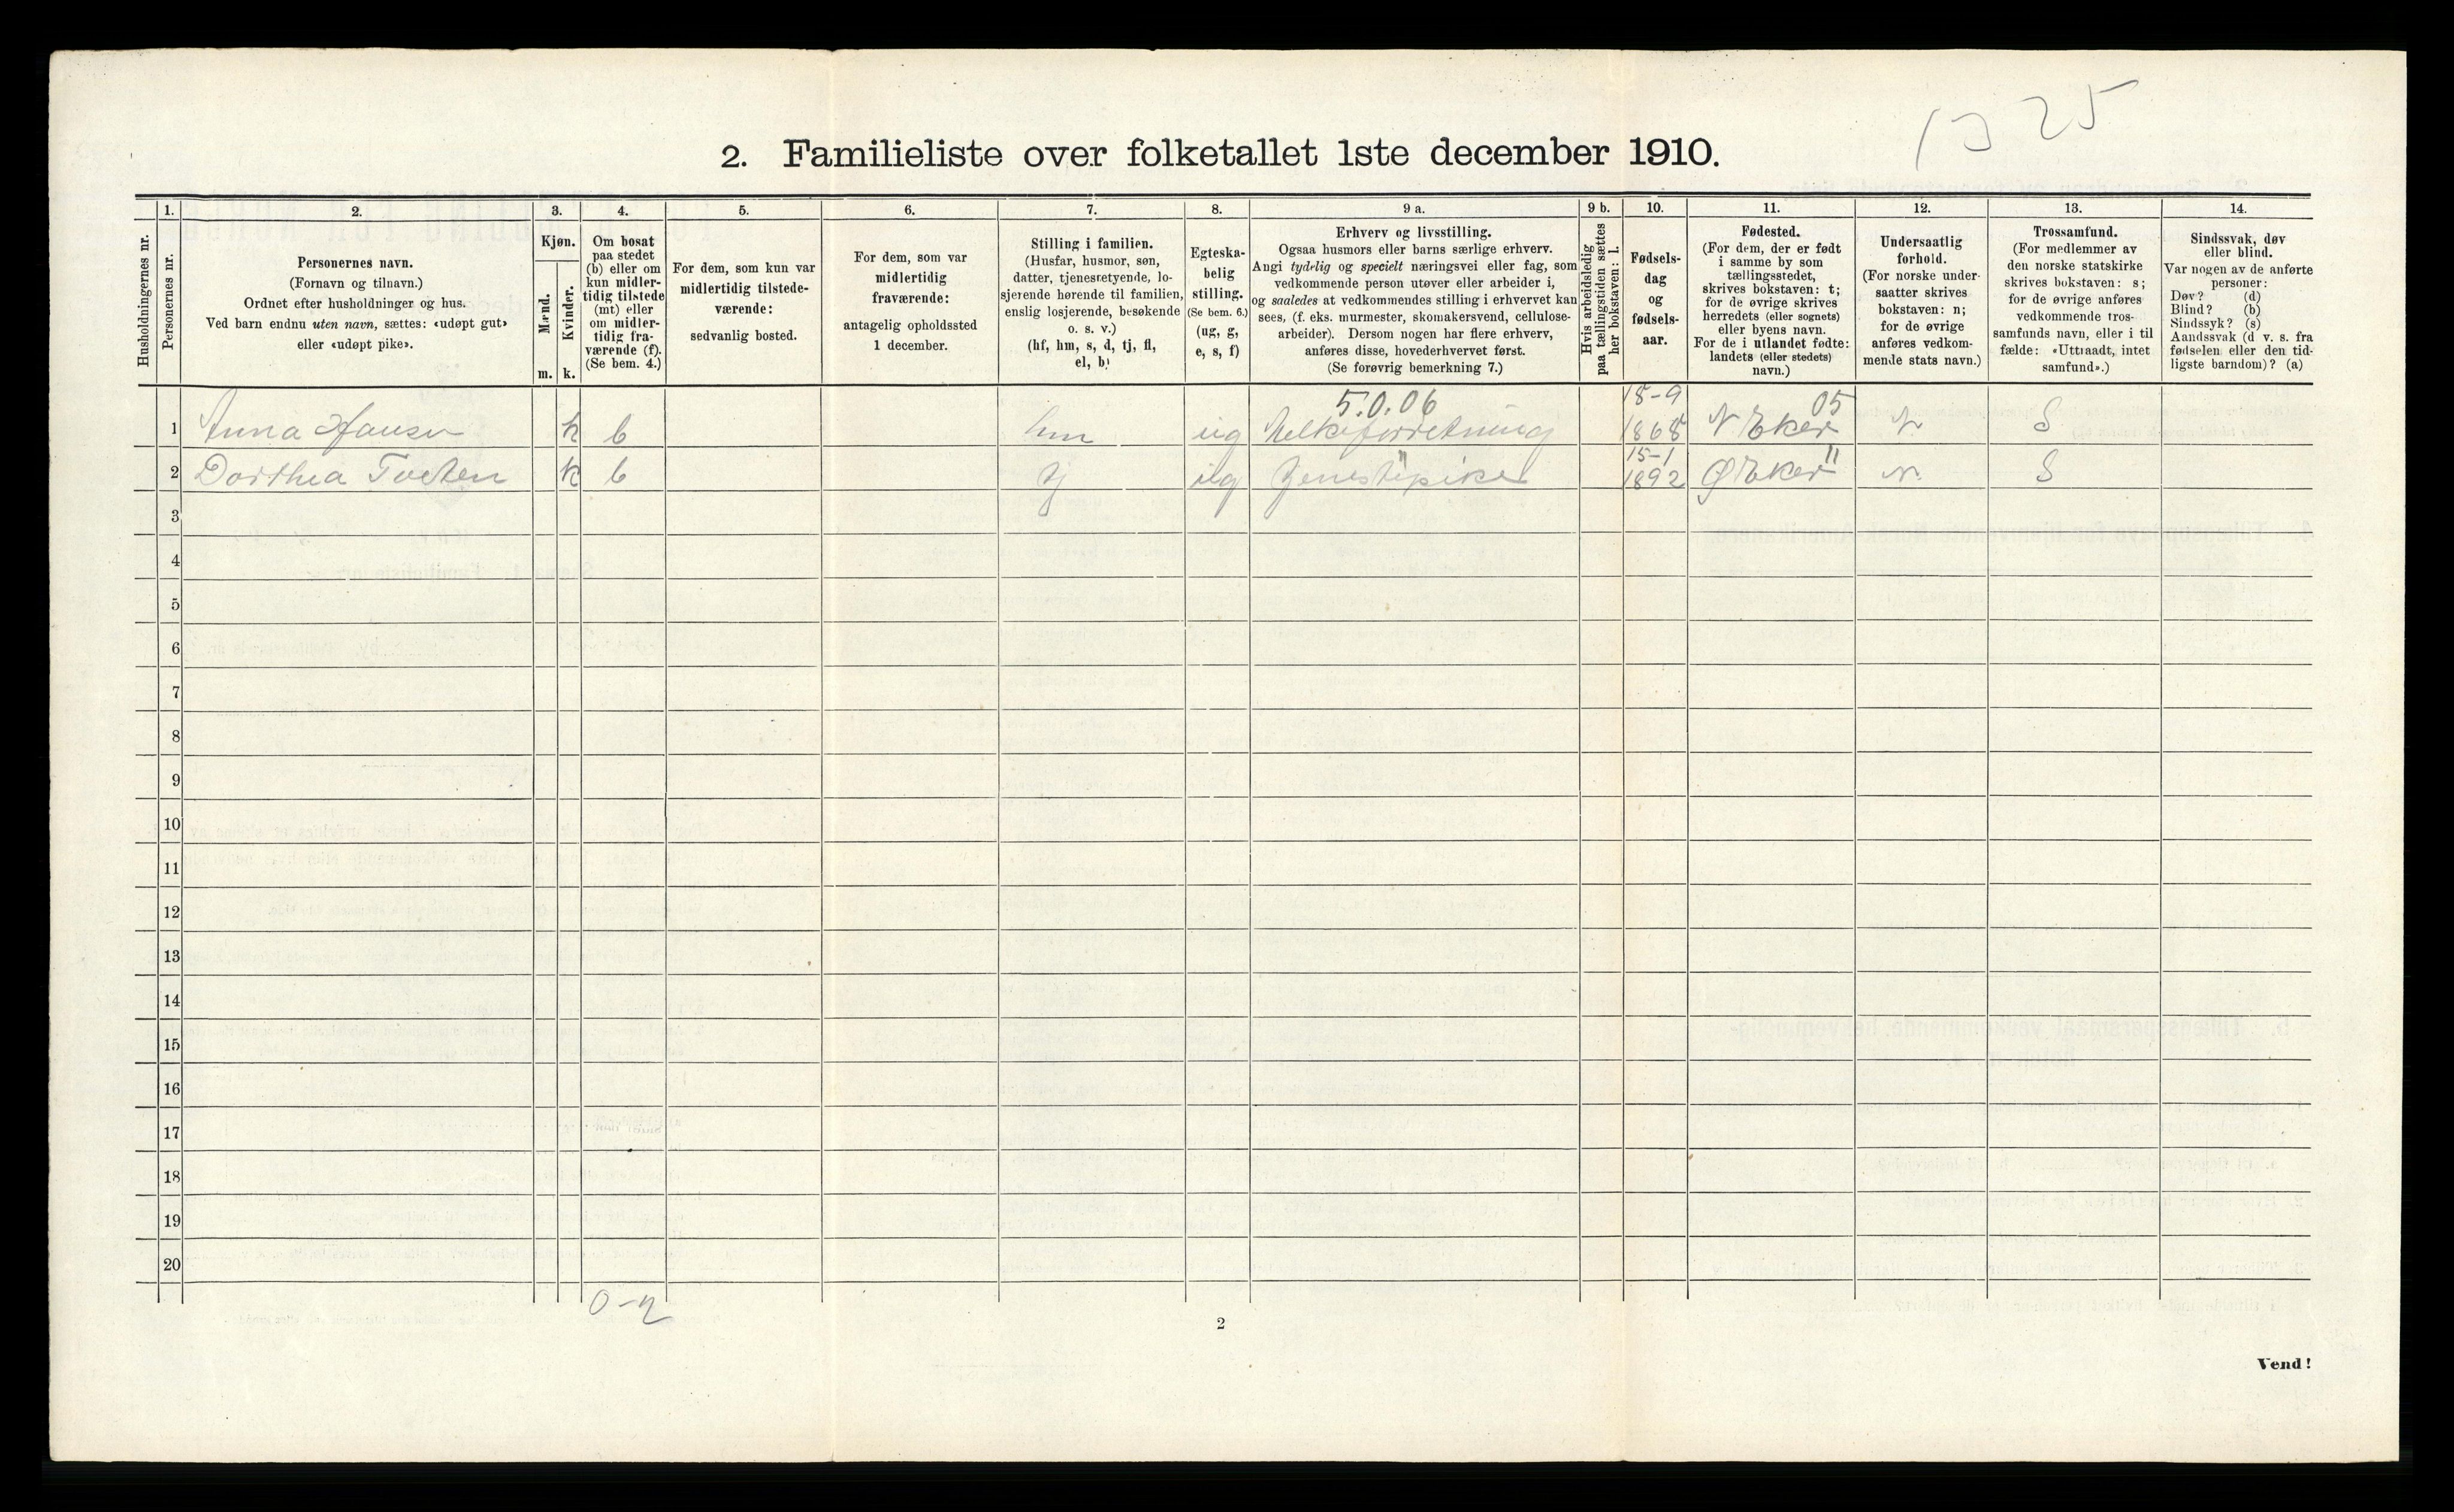 2. Familieliste over folketallet 1ste december 1910.
Husholdningernes nr.
1.
Personernes nr.
2.
Personernes navn.
(Fornavn og tilnavn.)
Ordnet efter husholdninger og hus.
Ved barn endnu uten navn, sættes: «udøpt gut»
eller «udøpt pike».
3.
Kjøn.
Mænd.
Kvinder.
m. k.
4.
Om bosat
paa stedet
(b) eller om
kun midler-
tidig tilstede
(mt) eller
om midler-
tidig fra-
værende (f).
(Se bem. 4.)
5.
For dem, som kun var
midlertidig tilstede-
værende:
sedvanlig bosted.
6.
For dem, som var
midlertidig
fraværende:
antagelig opholdssted
1 december.
7.
Stilling i familien.
(Husfar, husmor, søn,
datter, tjenestetyende, lo-
sjerende hørende til familien,
enslig losjerende, besøkende
o. s. v.)
(hf, hm, s, d, tj, fl,
el, b)
8.
Egteska-
belig
stilling.
(Se bem. 6.)
(ug, g,
e, s, f)
9 a.
Erhverv og livsstilling.
Ogsaa husmors eller barns særlige erhverv.
Angi tydelig og specielt næringsvei eller fag, som
vedkommende person utøver eller arbeider i,
og saaledes at vedkommendes stilling i erhvervet kan
sees, (f. eks. murmester, skomakersvend, cellulose-
arbeider). Dersom nogen har flere erhverv,
anføres disse, hovederhvervet først.
(Se forøvrig bemerkning 7.)
9 b.
Hvis arbeidsledig
paa tællingstiden sættes
her bokstaven: l.
10.
Fødsels-
dag
og
fødsels-
aar.
11.
Fødested.
(For dem, der er født
i samme by som
tællingsstedet,
skrives bokstaven: t;
for de øvrige skrives
herredets (eller sognets)
eller byens navn.
For de i utlandet fødte:
landets (eller stedets)
navn.)
12.
Undersaatlig
forhold.
(For norske under-
saatter skrives
bokstaven: n;
for de øvrige
anføres vedkom-
mende stats navn.)
13.
Trossamfund.
(For medlemmer av
den norske statskirke
skrives bokstaven: s;
for de øvrige anføres
vedkommende tros-
samfunds navn, eller i til
fælde: «Uttraadt, intet
samfund».)
14.
Sindssvak, døv
eller blind.
Var nogen av de anførte
personer:
Døv? (d)
Blind? (b)
Sindssyk? (s)
Aandssvak (d v. s. fra
fødselen eller den tid-
ligste barndom)? (a)
5.0.06 18-9 05
1 Anna Hansen k b hm ug Melkeforretning 1868 N Eker N S
15-1 11
2 Dorthea Tveten k b tj ug Tjenestepike 1892 Ø Eker N. S
3
4
5
6
7
8
9
10
11
12
13
14
15
16
17
18
19
20
0-2
2
Vend!